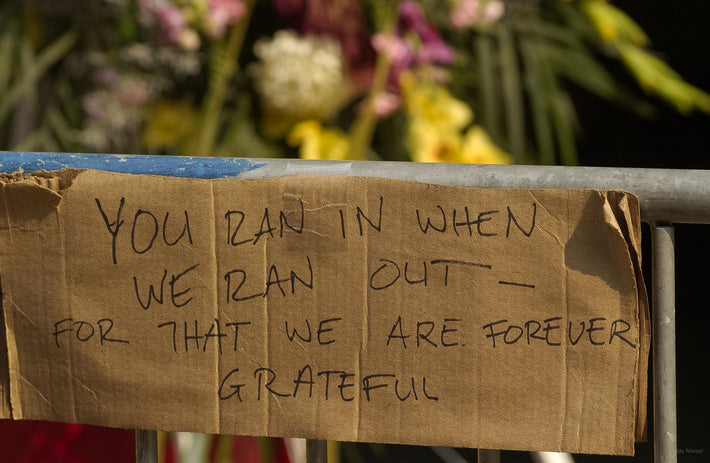 YOU RAN IN WHEN
WE RAN OUT —
FOR THAT WE ARE FOREVER
GRATEFUL
Jay Maisel